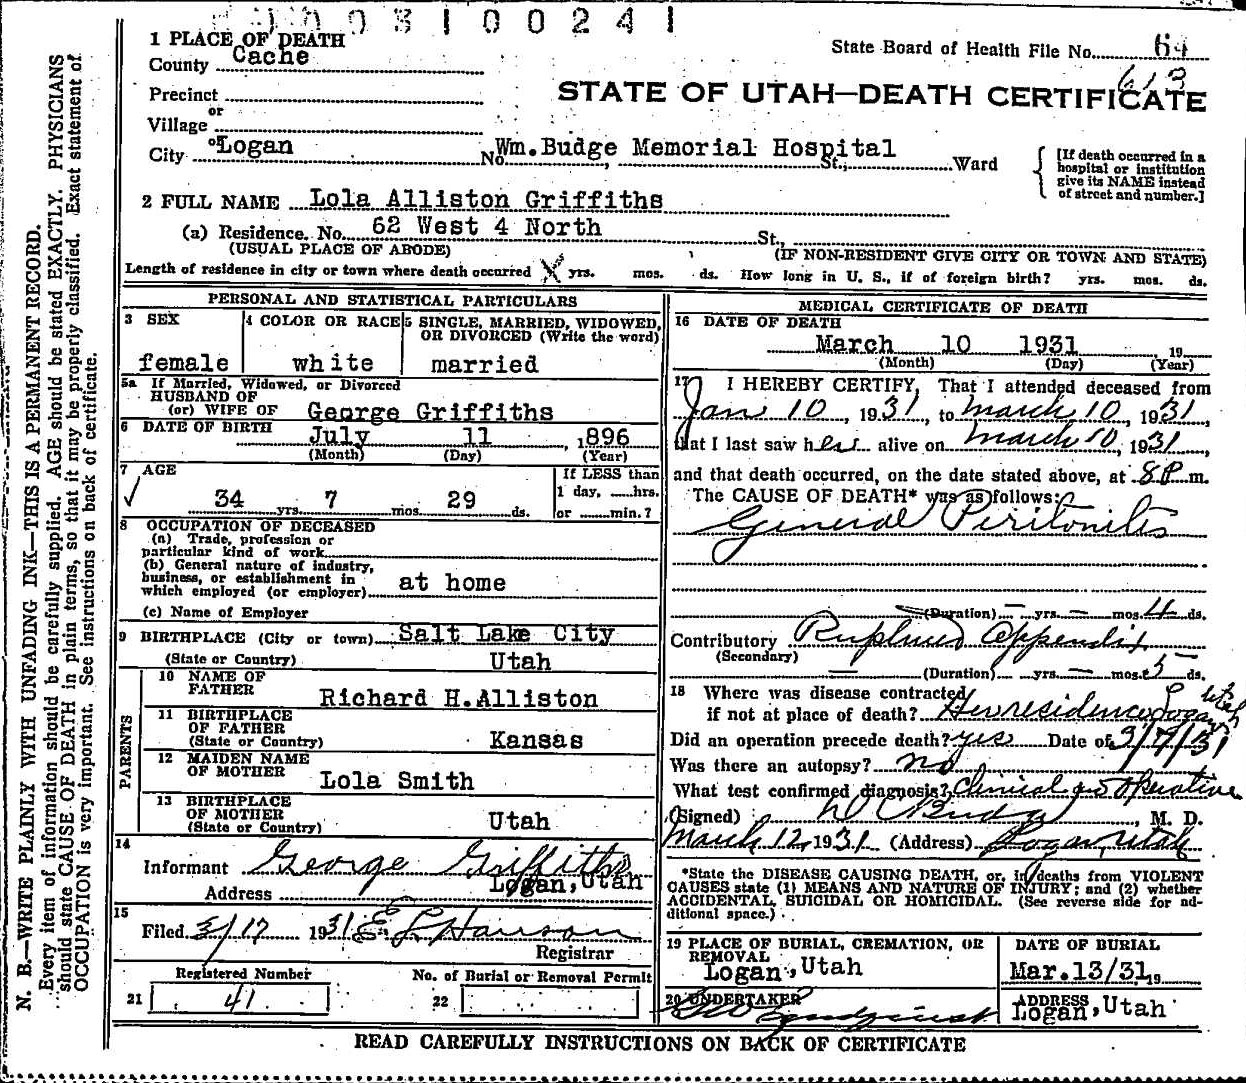 1003100241
1 PLACE OF DEATH
County Cache
State Board of Health File No. 64
613
Precinct
or
Village
or
City Logan No. Wm.Budge Memorial Hospital St., Ward
STATE OF UTAH—DEATH CERTIFICATE
[If death occurred in a
hospital or institution
give its NAME instead
of street and number.]
2 FULL NAME Lola Alliston Griffiths
(a) Residence. No. 62 West 4 North St.,
(USUAL PLACE OF ABODE) (IF NON-RESIDENT GIVE CITY OR TOWN AND STATE)
Length of residence in city or town where death occurred X yrs. mos. ds. How long in U. S., if of foreign birth? yrs. mos. ds.
PERSONAL AND STATISTICAL PARTICULARS
3 SEX
female
4 COLOR OR RACE
white
5 SINGLE, MARRIED, WIDOWED,
OR DIVORCED (Write the word)
married
5a If Married, Widowed, or Divorced
HUSBAND OF
(or) WIFE OF George Griffiths
6 DATE OF BIRTH July 11 , 1896
(Month) (Day) (Year)
7 AGE
34 yrs. 7 mos. 29 ds.
If LESS than
1 day, ......hrs.
or ......min.?
8 OCCUPATION OF DECEASED
(a) Trade, profession or
particular kind of work
(b) General nature of industry,
business, or establishment in
which employed (or employer) at home
(c) Name of Employer
9 BIRTHPLACE (City or town) Salt Lake City
(State or Country) Utah
PARENTS
10 NAME OF
FATHER Richard H.Alliston
11 BIRTHPLACE
OF FATHER
(State or Country) Kansas
12 MAIDEN NAME
OF MOTHER Lola Smith
13 BIRTHPLACE
OF MOTHER
(State or Country) Utah
14
Informant George Griffiths
Address Logan, Utah
15
Filed 3/17 1931 E L Hanson
Registrar
Registered Number
21 41
No. of Burial or Removal Permit
22
MEDICAL CERTIFICATE OF DEATH
16 DATE OF DEATH
March 10 1931 19
(Month) (Day) (Year)
17 I HEREBY CERTIFY, That I attended deceased from
Jan 10, 1931, to March 10, 1931,
that I last saw her alive on March 10, 1931,
and that death occurred, on the date stated above, at 8P m.
The CAUSE OF DEATH* was as follows:
General Peritonitis
(Duration) — yrs. — mos. 4 ds.
Contributory Ruptured Appendix
(Secondary)
(Duration) — yrs. — mos. 5 ds.
18 Where was disease contracted
if not at place of death? Her residence Logan Utah
Did an operation precede death? yes Date of 3/7/31
Was there an autopsy? no
What test confirmed diagnosis? Clinical and Operative
(Signed) D C Budge, M. D.
March 12, 1931 (Address) Logan, Utah
*State the DISEASE CAUSING DEATH, or, in deaths from VIOLENT
CAUSES state (1) MEANS AND NATURE OF INJURY; and (2) whether
ACCIDENTAL, SUICIDAL OR HOMICIDAL. (See reverse side for ad-
ditional space.)
19 PLACE OF BURIAL, CREMATION, OR
REMOVAL
Logan, Utah
DATE OF BURIAL
Mar.13/31 19
20 UNDERTAKER
ADDRESS
Logan, Utah
READ CAREFULLY INSTRUCTIONS ON BACK OF CERTIFICATE
N. B.—WRITE PLAINLY WITH UNFADING INK—THIS IS A PERMANENT RECORD.
Every item of information should be carefully supplied. AGE should be stated EXACTLY. PHYSICIANS
should state CAUSE OF DEATH in plain terms, so that it may be properly classified. Exact statement of
OCCUPATION is very important. See instructions on back of certificate.